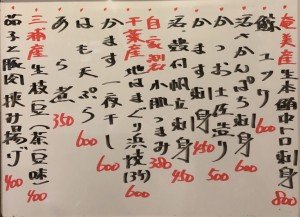 奄美産 生本鮪中トロ刺身 800
鯨ユッケ 600
活さかんぱち刺身 600
かつお土佐造り 500
かます刺身 450
活〆殻付帆立刺身 450
自家製 小肌つまみ 380
千葉産 地はまぐり浜焼(3ヶ) 600
かます一夜干し 600
はも天ぷら 600
あら煮 350
三浦産 生枝豆(茶豆味) 400
茄子と豚肉挟み揚げ 400